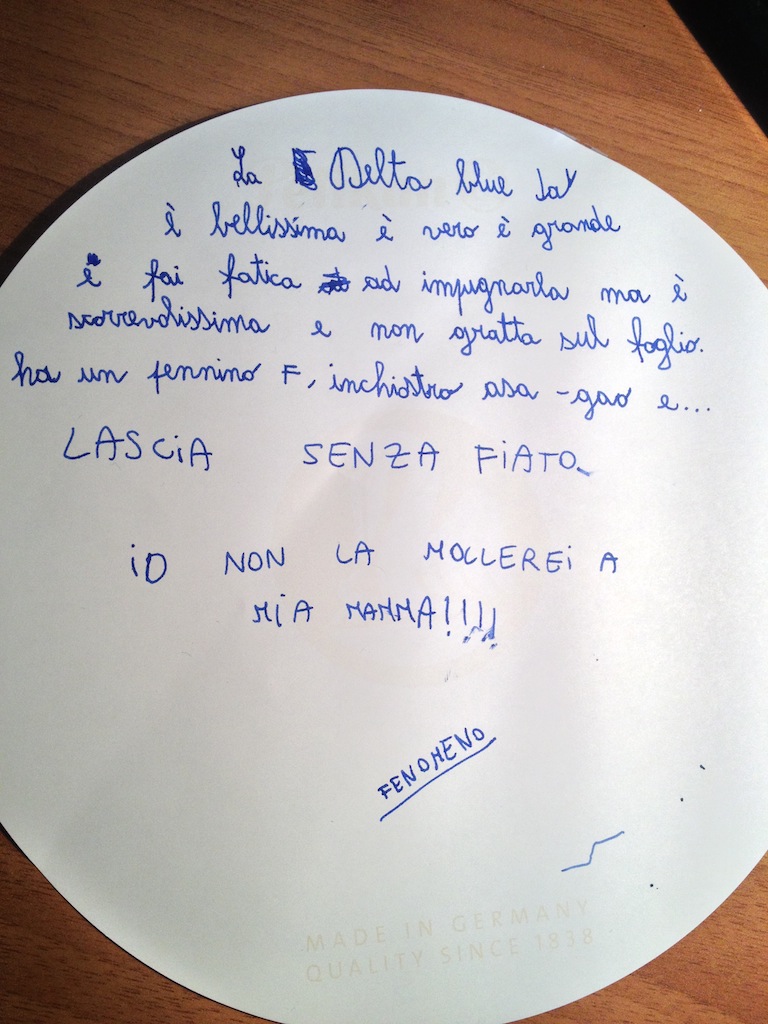 La Delta blue Jay
è bellissima è vero è grande
e fai fatica ad impugnarla ma è
scorrevolissima e non gratta sul foglio.
ha un pennino F, inchiostro asa-gao e...
LASCiA SENZA FiATO
iO NON LA MOLLEREi A
MiA MAMMA!!!!
FENOMENO
MADE IN GERMANY
QUALITY SINCE 1838